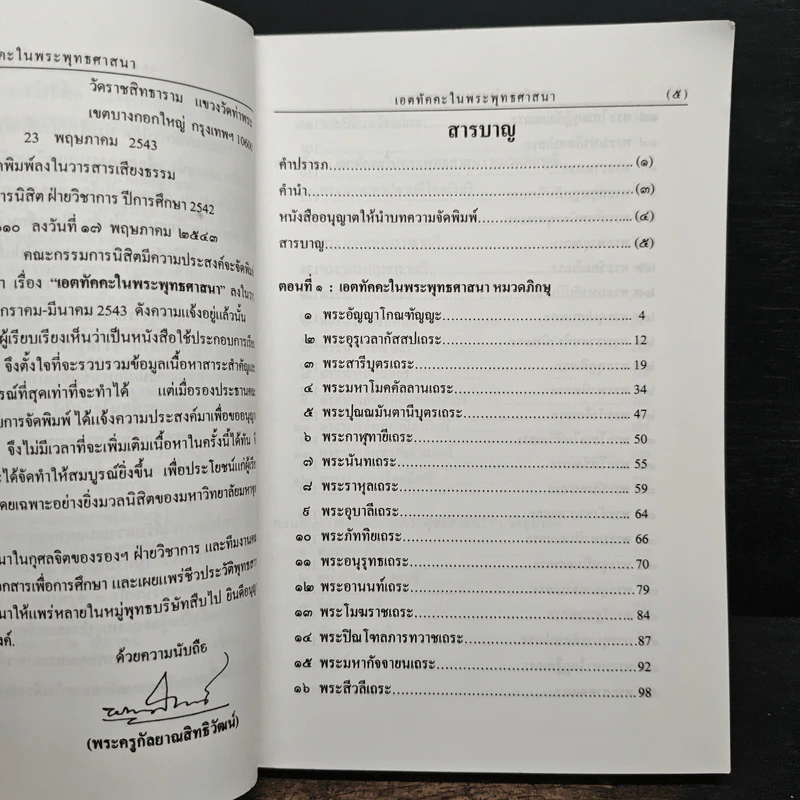 คะในพระพุทธศาสนา
วัดราชสิทธาราม แขวงวัดท่าพระ
เขตบางกอกใหญ่ กรุงเทพฯ 10600
23 พฤษภาคม 2543
พิมพ์ลงในวารสารเสียงธรรม
การนิสิต ฝ่ายวิชาการ ปีการศึกษา 2542
๑๐ ลงวันที่ ๑๗ พฤษภาคม ๒๕๔๓
คณะกรรมการนิสิตมีความประสงค์จะจัดพิมพ์
เรื่อง “เอตทัคคะในพระพุทธศาสนา” ลงใน
กราคม-มีนาคม 2543 ดังความแจ้งอยู่แล้วนั้น
ผู้เรียบเรียงเห็นว่าเป็นหนังสือใช้ประกอบการ
จึงตั้งใจที่จะรวบรวมข้อมูลเนื้อหาสาระสำคัญ
รณ์ที่สุดเท่าที่จะทำได้ แต่เมื่อรองประธาน
การจัดพิมพ์ ได้แจ้งความประสงค์มาเพื่อขออนุญา
จึงไม่มีเวลาที่จะเพิ่มเติมเนื้อหาในครั้งนี้ได้ทัน
ได้จัดทำให้สมบูรณ์ยิ่งขึ้น เพื่อประโยชน์แก่
ดยเฉพาะอย่างยิ่งมวลนิสิตของมหาวิทยาลัย
นาในกุศลจิตของรองฯ ฝ่ายวิชาการ และทีมงาน
อกสารเพื่อการศึกษา และเผยแพร่ชีวประวัติ
นาให้แพร่หลายในหมู่พุทธบริษัทสืบไป
งค์.
ด้วยความนับถือ
(พระครูกัลยาณสิทธิวัฒน์)
เอตทัคคะในพระพุทธศาสนา (๕)
สารบาญ
คำปรารภ (๑)
คำนำ (๓)
หนังสืออนุญาตให้นำบทความจัดพิมพ์ (๔)
สารบาญ (๕)
ตอนที่ ๑ : เอตทัคคะในพระพุทธศาสนา หมวดภิกษุ
๑ พระอัญญาโกณฑัญญะ 4
๒ พระอุรุเวลากัสสปเถระ 12
๓ พระสารีบุตรเถระ 19
๔ พระมหาโมคคัลลานเถระ 34
๕ พระปุณณมันตานีบุตรเถระ 47
๖ พระกาฬุทายีเถระ 50
๗ พระนันทเถระ 55
๘ พระราหุลเถระ 59
๙ พระอุบาลีเถระ 64
๑๐ พระภัททิยเถระ 66
๑๑ พระอนุรุทธเถระ 70
๑๒ พระอานนท์เถระ 79
๑๓ พระโมฆราชเถระ 84
๑๔ พระปิณโฑลภารทวาชเถระ 87
๑๕ พระมหากัจจายนเถระ 92
๑๖ พระสีวลีเถระ 98